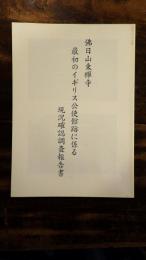 佛日山東禅寺
最初のイギリス公使館跡に係る
現況確認調査報告書